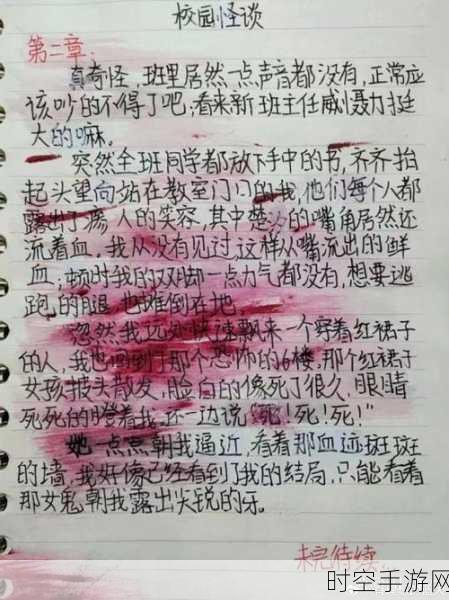 校园怪谈
第二章.
真奇怪，班里居然一点声音都没有，正常应
该吵的不得了吧，看来新班主任威慑力挺
大的嘛。
突然全班同学都放下手中的书，齐齐抬
起头望向站在教室门口的我，他们每个人都
露出了瘆人的笑容，其中楚的嘴角居然还
流着血。我从没有见过这样从嘴流出的鲜
血，顿时我的双脚一点力气都没有，想要逃
跑，的腿也摊倒在地。
忽然，我远处快速飘来一个穿着红裙子
的人，我也回到了那个恐怖的6楼，那个红裙子
女孩披头散发，脸白的像死了很久，眼睛
死死的瞪着我，还一边说"死！死！死！"
她一点点朝我逼近，看着那血迹斑斑
的墙，我好像已经看到了我的结局，只能看着
那女鬼朝我露出尖锐的牙。
未完待续.
时空手游网